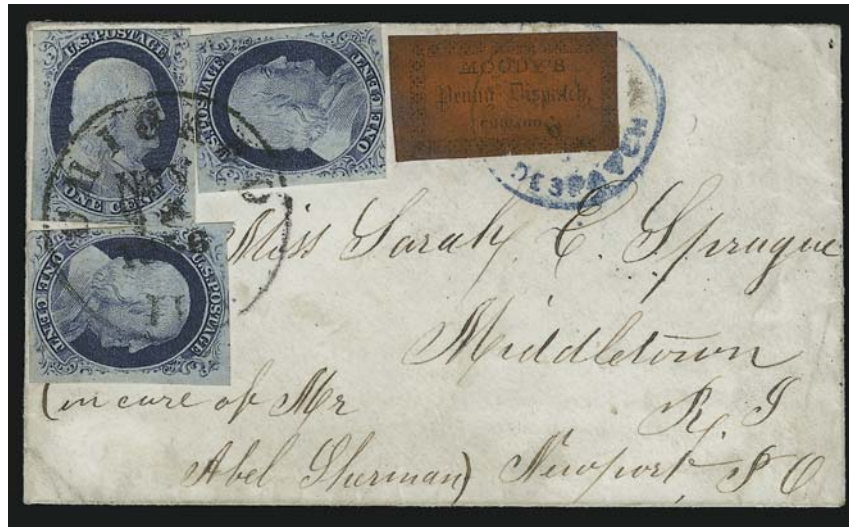 U.S.POSTAGE
ONE CENT
U.S.POSTAGE
ONE CENT
U.S.POSTAGE
ONE CENT
MOODY'S
Penny Dispatch,
CHICAGO
DESPATCH
Miss Sarah E. Sprague
Middletown
R. I
(in care of Mr
Abel Sherman) Newport P O